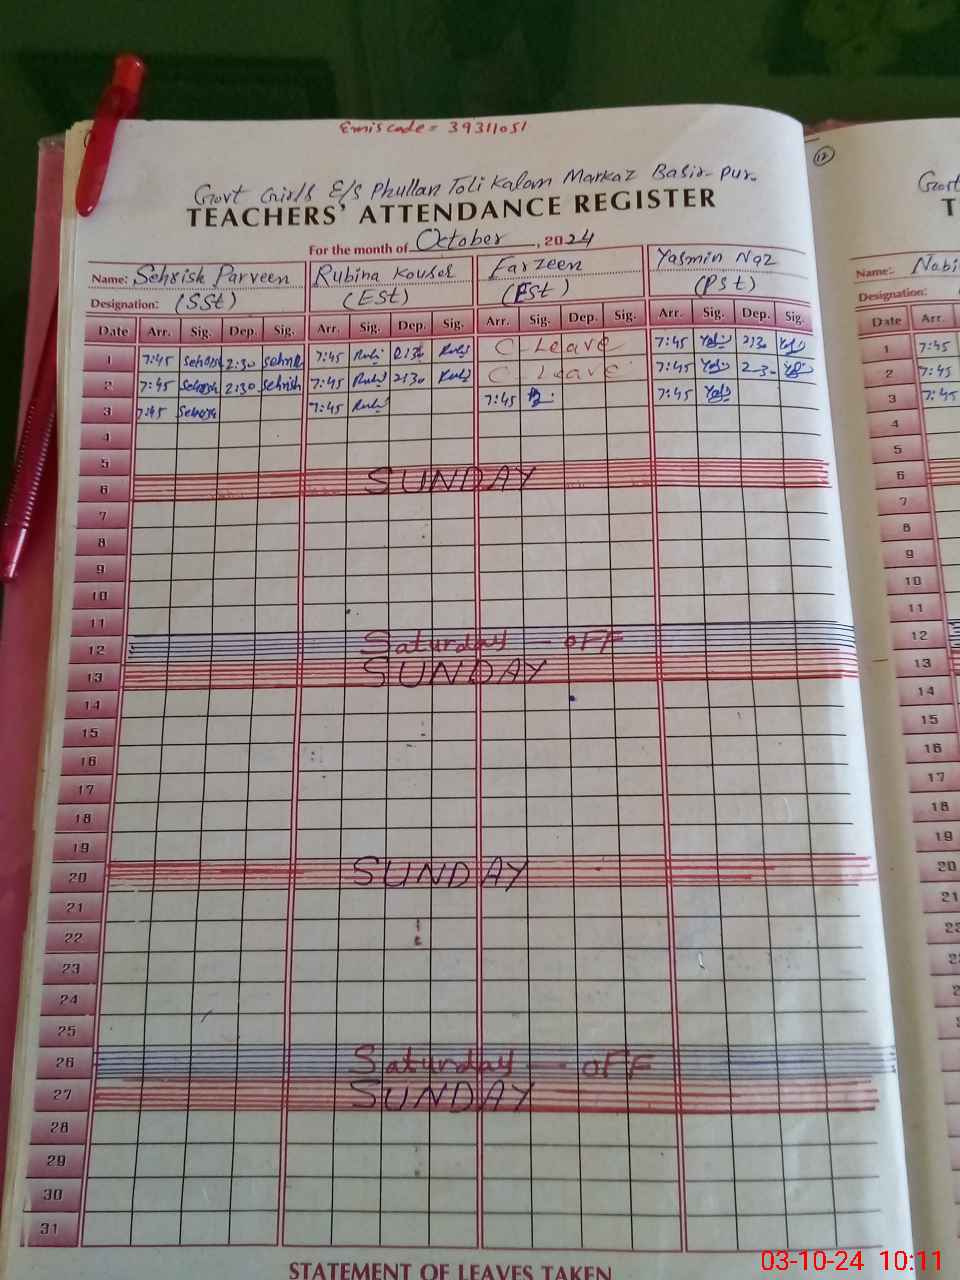 Emiscode = 39311051
Govt Girls E/S Phullan Toli Kalan Markaz Basir-pur.
TEACHERS' ATTENDANCE REGISTER
For the month of October, 2024
Name: Sehrish Parveen Rubina Kousel Farzeen Yasmin Naz
Designation: (SSt) (ESt) (ESt) (PSt)
Date Arr. Sig. Dep. Sig. Arr. Sig. Dep. Sig. Arr. Sig. Dep. Sig. Arr. Sig. Dep. Sig.
1 7:45 2:30 7:45 2:30 C-Leave 7:45 2:30
2 7:45 2:30 Sehrish 7:45 2:30 C-Leave 7:45 2-30
3 7:45 7:45 7:45 7:45
4
5
6 SUNDAY
7
8
9
10
11
12 Saturday - OFF
13 SUNDAY
14
15
16
17
18
19
20 SUNDAY
21
22
23
24
25
26 Saturday - OFF
27 SUNDAY
28
29
30
31
STATEMENT OF LEAVES TAKEN
12
Govt
T
Name: Nabi
Designation:
Date Arr.
1 7:45
2 7:45
3 7:45
4
5
6
7
8
9
10
11
12
13
14
15
16
17
18
19
20
21
03-10-24 10:11